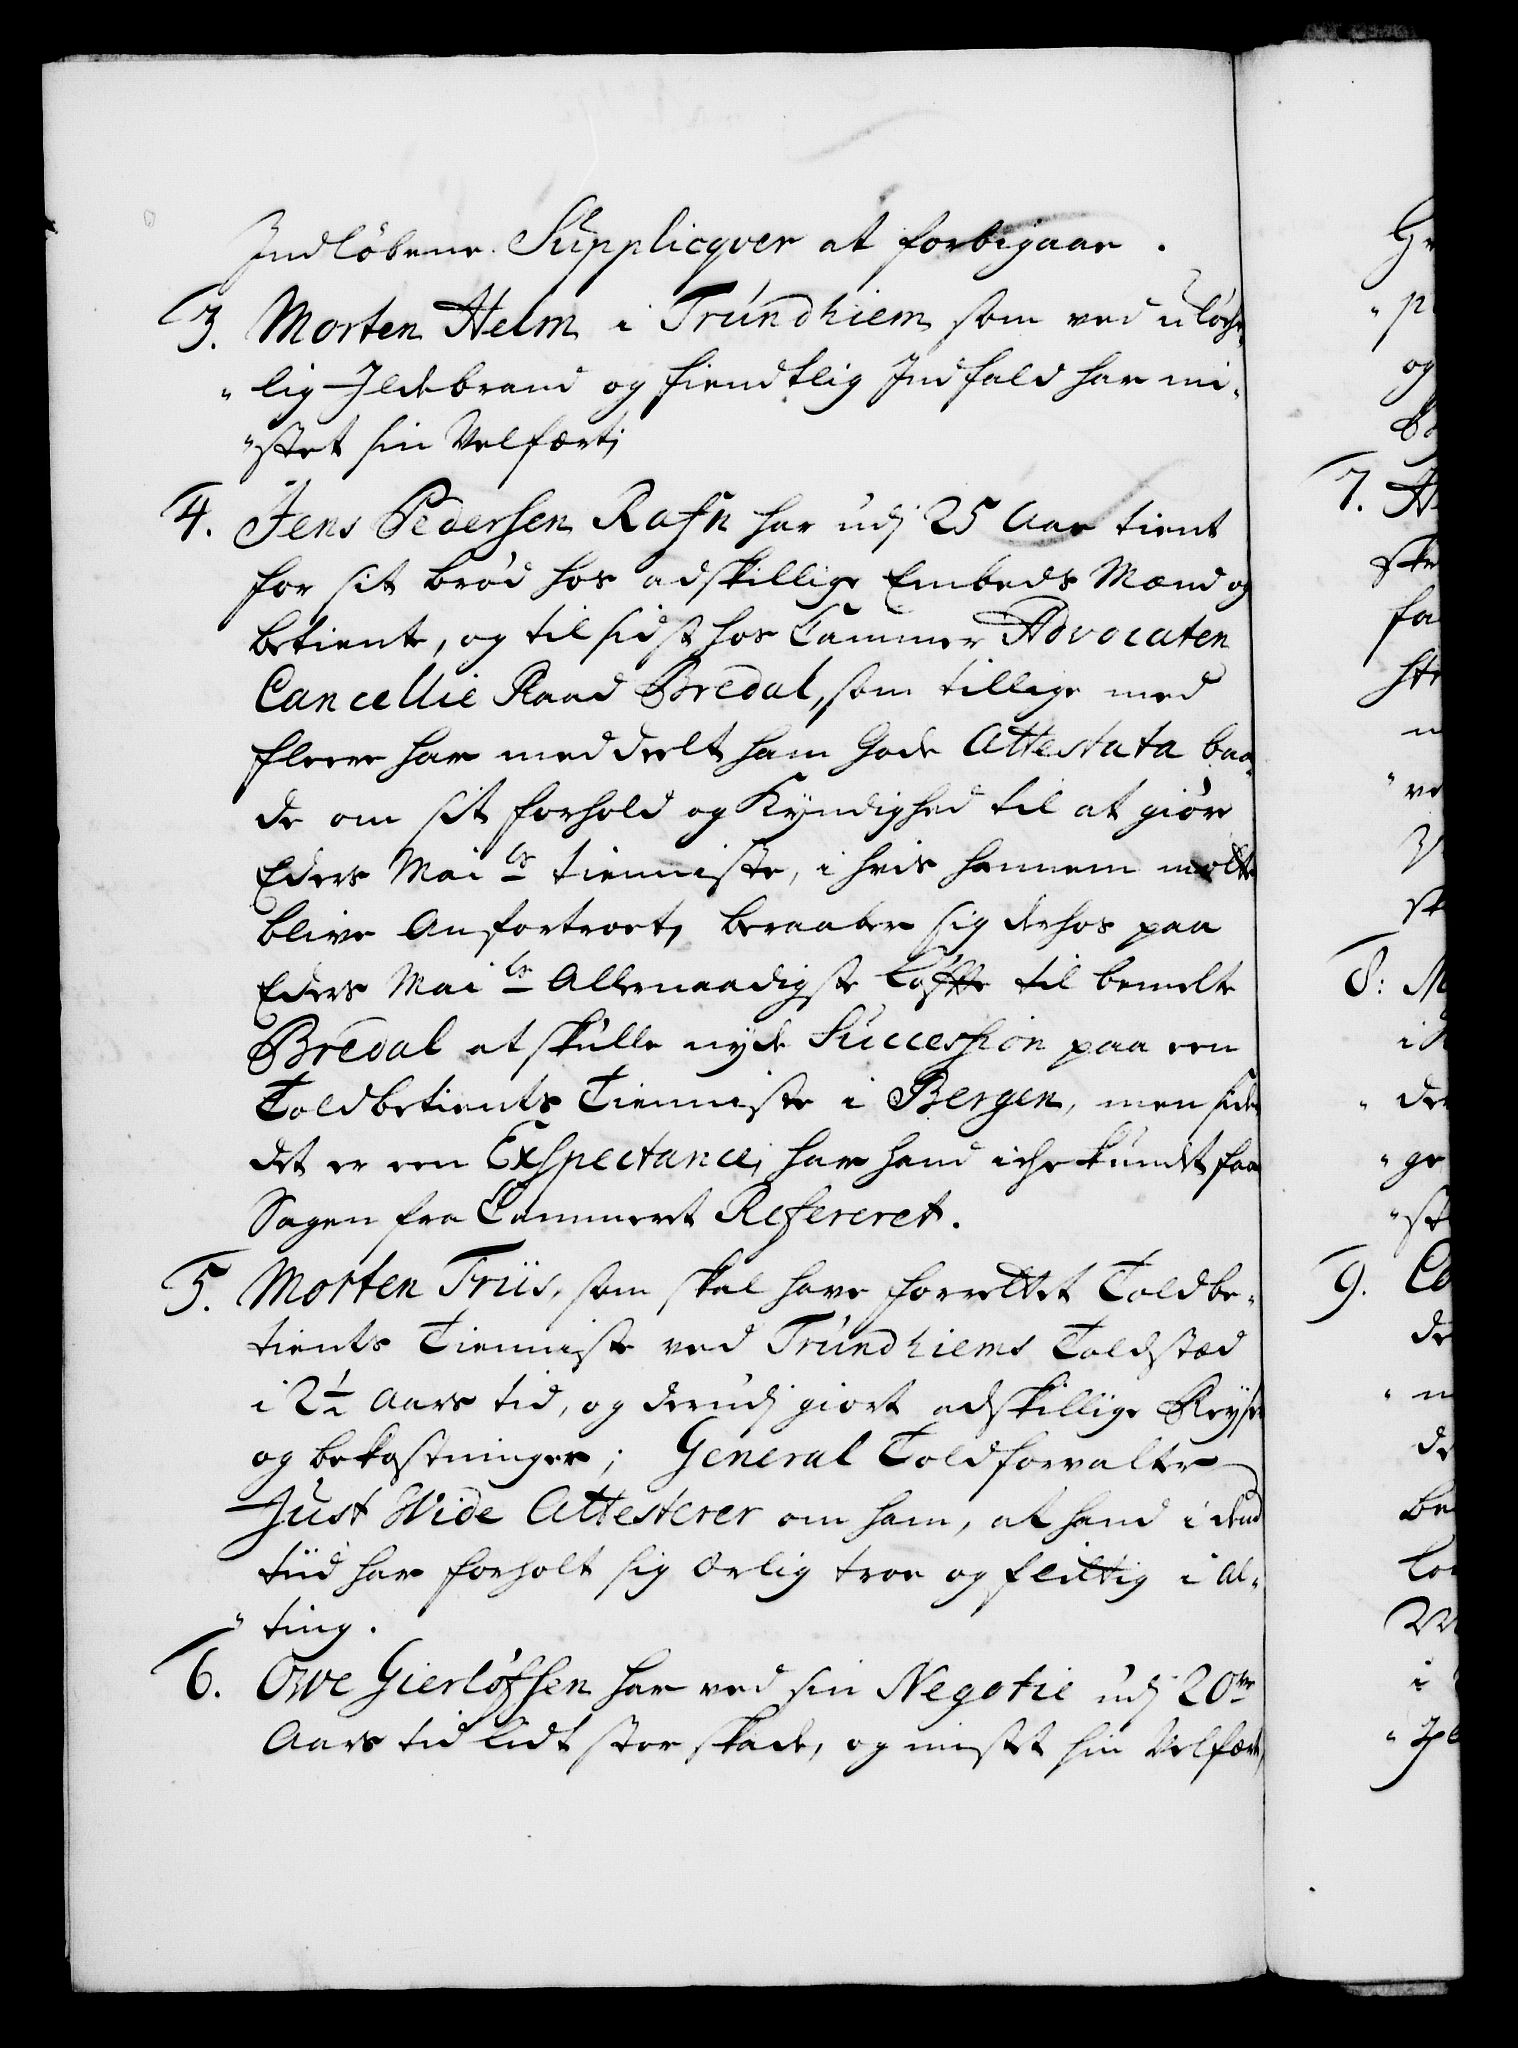 Indløbene Supplicqver at forbigaae.
3. Morten Helm i Trundhiem som ved uløche-
„lig Ildebrand og fiendtlig Indfald har mi-
„stet sin Velfært;
4. Jens Pedersen Rafn har udj 25 Aar tient
for sit brød hos adskillige Embeds Mænd og
betiente, og til sidst hos Cammer Advocaten
Cancellie Raad Bredal, som tillige med
fleere har meddeelt ham Gode Attestata baa-
de om sit forhold og Kyndighed til at giøre
Eders Mai ts tienniste, i hvis hannem motte
blive Anfortroet, beraaber sig derhos paa
Eders Mai ts Allernaadigste Løffte til bemelte
Bredal at skulle nyde Succession paa een
Toldbetients Tienniste i Bergen, men siden
det er een Exspectance, har hand iche kundet faa
Sagen fra Cammeret Refereret.
5. Morten Friis, som skal have forrettet Toldbe-
tients Tienniste ved Trundhiems Toldsted
i 2½ Aars tid, og derudj giort adskillige Reyser
og bekostninger; General Toldforvalter
Just Wide Attesterer om ham, at hand i dend
tiid har forholt sig ærlig troe og flittig i Al-
„ting.
6. Owe Gierløfsen har ved sin Negotie udj 20ve
Aars tid lidt stor skade, og mistet sin Velfært,
7.
8:
9.